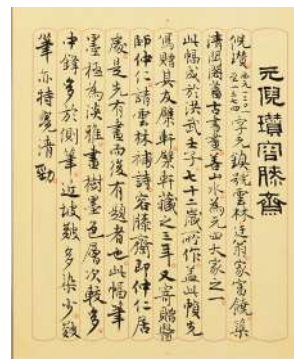 元倪瓚容膝齋
倪瓚(西元一三〇一至一三七四)字元鎮號雲林迂翁家富饒築
清閟閣蓄古書畫善山水為元四大家之一
此幅成於洪武壬子七十二歲所作蓋此幀先
寫贈其友檗軒檗軒藏之三年又寄贈醫
師仲仁請雲林補詩容膝齋即仲仁居
處是先有畫而後有題者也此幅筆
墨極為淡雅畫樹墨色層次較多
中鋒多於側筆近坡皴多染少皴
筆亦特覺清勁